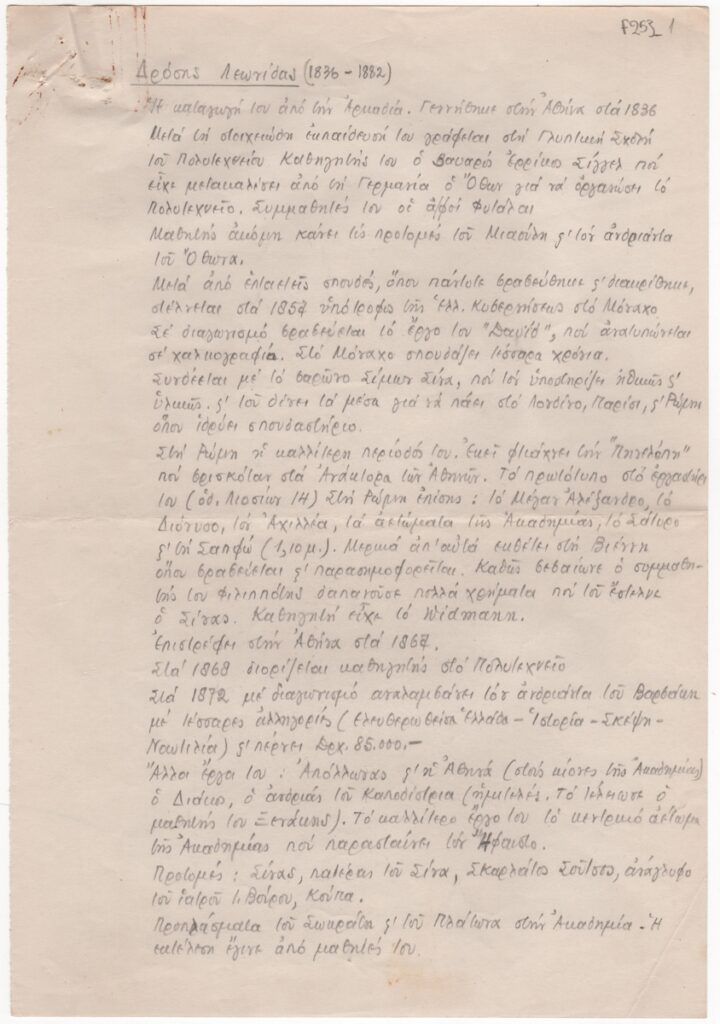 F253 1
Δρόσης Λεωνίδας (1836 - 1882)
Ἡ καταγωγή του ἀπό τήν Ἀρκαδία. Γεννήθηκε στήν Ἀθήνα στά 1836
Μετά τή στοιχειώδη ἐκπαίδευσή του γράφεται στή Γλυπτική Σχολή
τοῦ Πολυτεχνείου Καθηγητής του ὁ Βαυαρός Ἐρρίκος Σίγγελ πού
εἶχε μετακαλέσει ἀπό τή Γερμανία ὁ Ὄθων γιά νά ὀργανώσει τό
Πολυτεχνεῖο. Συμμαθητές του οἱ ἀφοί Φυτάλαι
Μαθητής ἀκόμη κάνει τίς προτομές τοῦ Μιαούλη ϛ' τόν ἀνδριάντα
τοῦ Ὄθωνα.
Μετά ἀπό ἑπταετεῖς σπουδές, ὅπου πάντοτε βραβεύθηκε ϛ' διακρίθηκε,
στέλνεται στά 1857 ὑπότροφος τῆς Ἑλλ. Κυβερνήσεως στό Μόναχο
Σέ διαγωνισμό βραβεύεται τό ἔργο του "Δαυίδ", πού ἀνατυπώνεται
σέ χαλκογραφία. Στό Μόναχο σπουδάζει τέσσαρα χρόνια.
Συνδέεται μέ τό βαρῶνο Σίμων Σίνα, πού τόν ὑποστηρίζει ἠθικῶς ϛ'
ὑλικῶς. ϛ' τοῦ δίνει τά μέσα γιά νά πάει στό Λονδίνο, Παρίσι, ϛ' Ρώμη
ὅπου ἱδρύει σπουδαστήριο.
Στή Ρώμη ἡ καλλίτερη περίοδός του. Ἐκεῖ φτιάχνει τήν "Πηνελόπη"
πού βρισκόταν στά Ἀνάκτορα τῶν Ἀθηνῶν. Τό πρωτότυπο στό ἐργαστήρι
του (ὁδ. Λιοσίων 14) Στή Ρώμη ἐπίσης : τό Μέγαν Ἀλέξανδρο, τό
Διόνυσο, τόν Ἀχιλλέα, τά ἀετώματα τῆς Ἀκαδημίας, τό Σάτυρο
ϛ' τή Σαπφώ (1,10 μ.). Μερικά ἀπ' αὐτά ἐκθέτει στή Βιέννη
ὅπου βραβεύεται ϛ' παρασημοφορεῖται. Καθώς βεβαίωνε ὁ συμμαθη-
τής του Φιλιππότης δαπανοῦσε πολλά χρήματα πού τοῦ ἔστελνε
ὁ Σίνας. Καθηγητή εἶχε τό Widmann.
Ἐπιστρέφει στήν Ἀθήνα στά 1867.
Στά 1868 διορίζεται καθηγητής στό Πολυτεχνεῖο
Στά 1872 μέ διαγωνισμό ἀναλαμβάνει τόν ἀνδριάντα τοῦ Βαρβάκη
μέ τέσσαρες ἀλληγορίες (Ἐλευθερωθεῖσα Ἑλλάδα - Ἱστορία - Σκέψη-
Ναυτιλία) ϛ' πέρνει Δρχ. 85.000.-
Ἄλλα ἔργα του : Ἀπόλλωνας ϛ' ἡ Ἀθηνᾶ (στούς κίονες τῆς Ἀκαδημίας)
ὁ Διάκος, ὁ ἀνδριάς τοῦ Καποδίστρια (ἡμιτελές. Τό τελείωσε ὁ
μαθητής του Ξενάκης). Τό καλλίτερο ἔργο του τό κεντρικό ἀέτωμα
τῆς Ἀκαδημίας πού παρασταίνει τόν Ἥφαιστο.
Προτομές : Σίνας, πατέρας τοῦ Σίνα, Σκαρλάτος Σοῦτσος, ἀνάγλυφο
τοῦ ἰατροῦ Ι. Βούρου, Κούπα.
Προπλάσματα τοῦ Σωκράτη ϛ' τοῦ Πλάτωνα στήν Ἀκαδημία - Ἡ
ἐκτέλεση ἔγινε ἀπό μαθητές του.